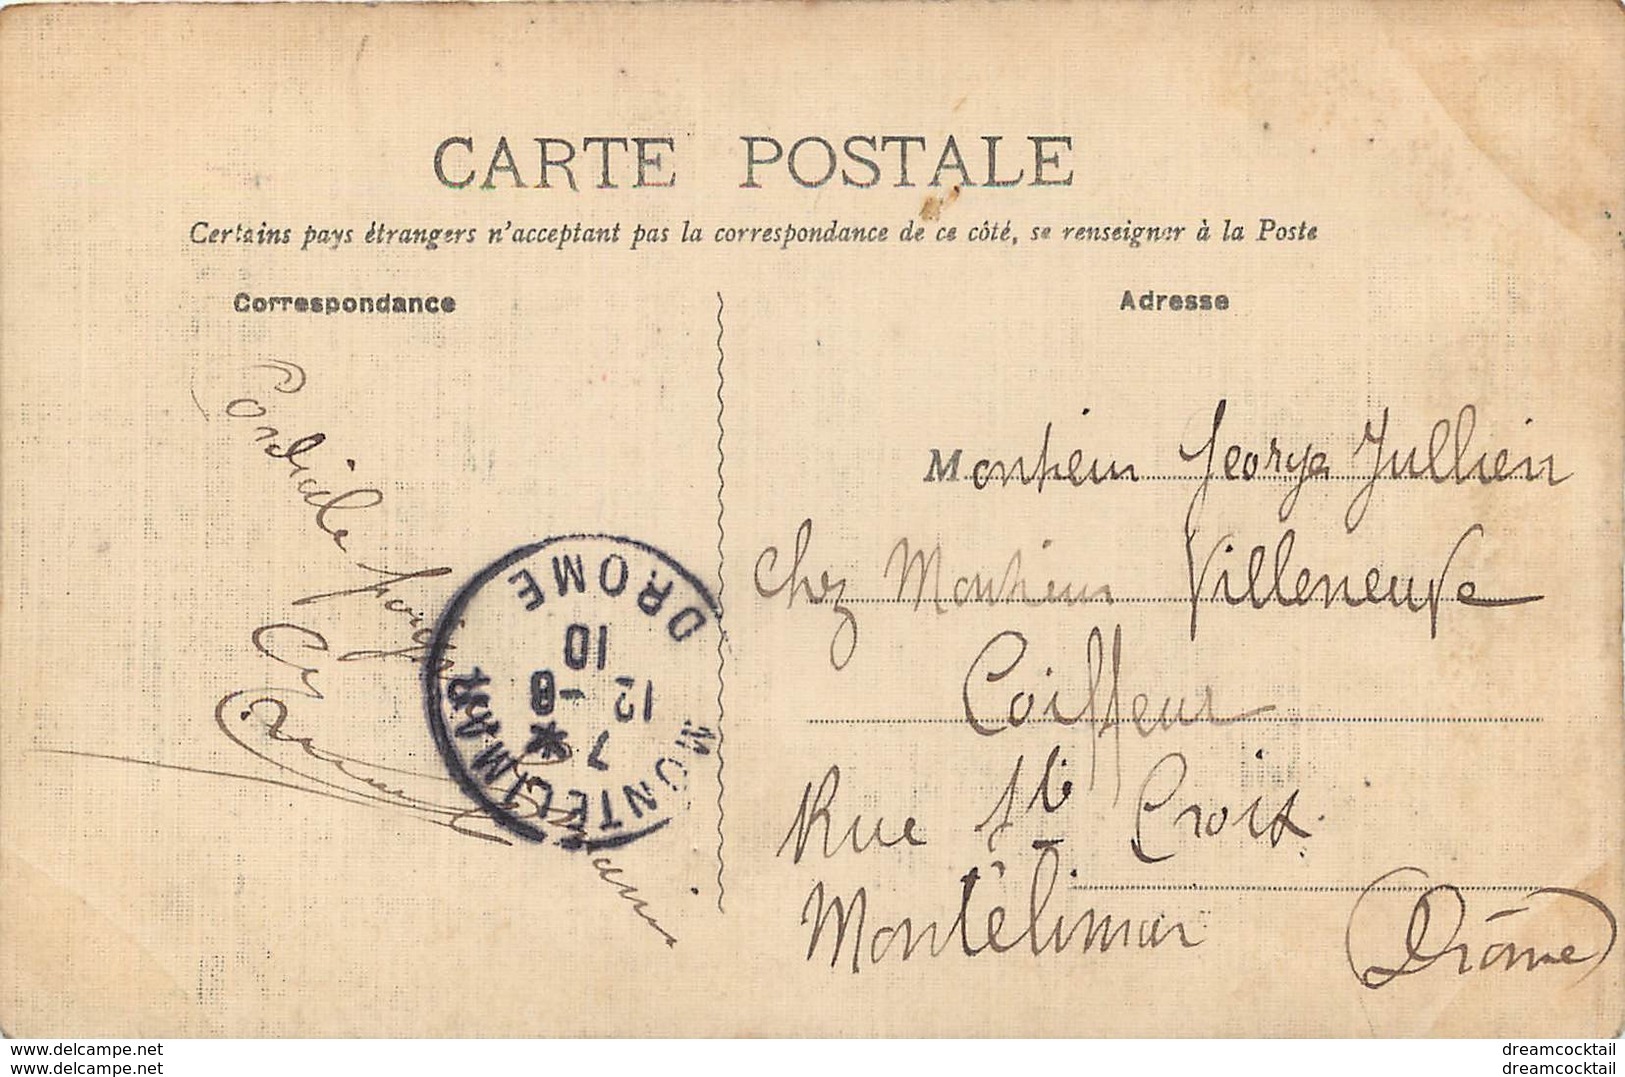 CARTE POSTALE
Certains pays étrangers n'acceptant pas la correspondance de ce côté, se renseigner à la Poste
Correspondance
Adresse
Cordiale
Monsieur Georges Jullien
chez Monsieur Villeneuve
Coiffeur
Rue Ste Croix
Montélimar (Drôme)
MONTELIMAR
7 *
12 -8
10
DROME
www.delcampe.net
www.delcampe.net
dreamcocktail
dreamcocktail